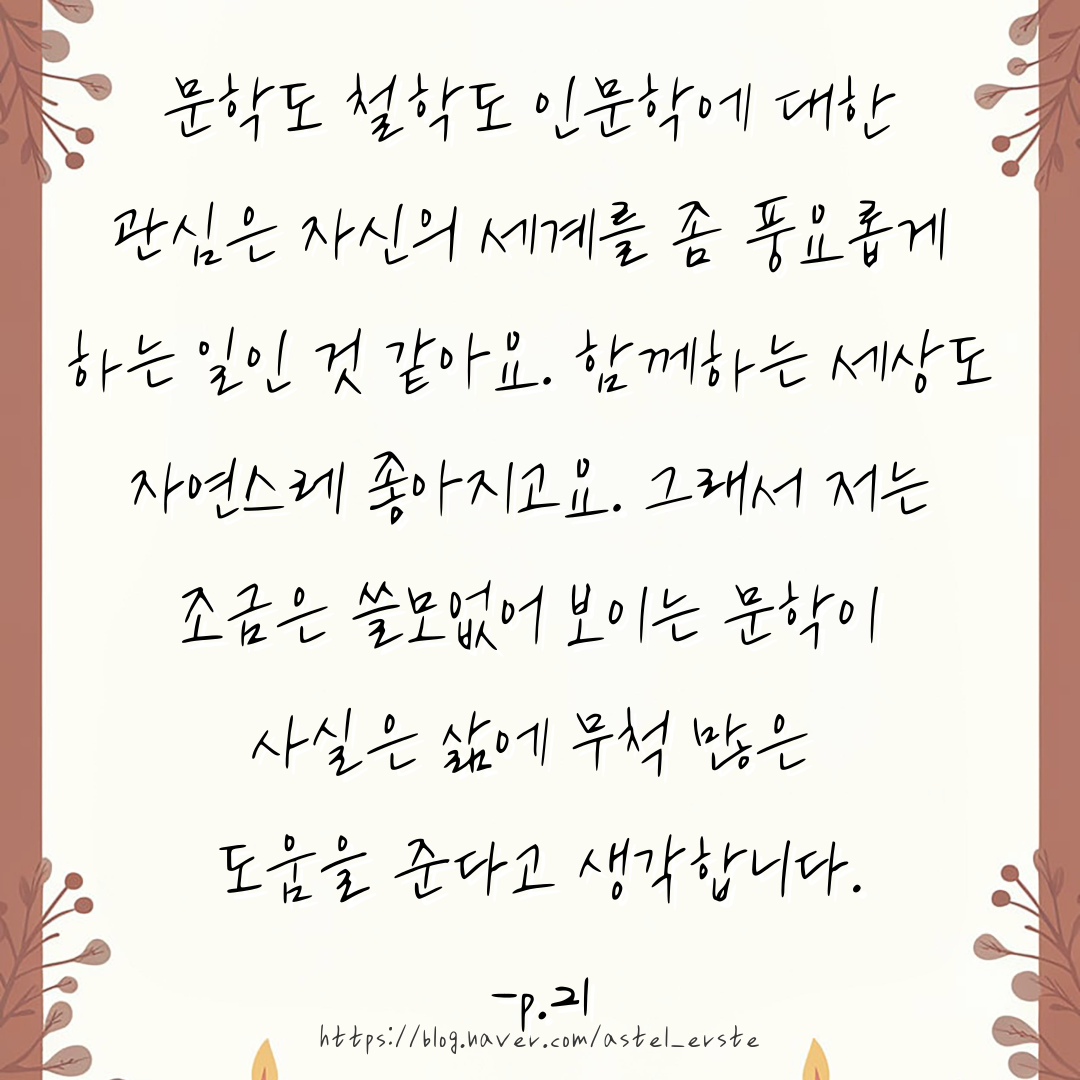 문학도 철학도 인문학에 대한
관심은 자신의 세계를 좀 풍요롭게
하는 일인 것 같아요. 함께하는 세상도
자연스레 좋아지고요. 그래서 저는
조금은 쓸모없어 보이는 문학이
사실은 삶에 무척 많은
도움을 준다고 생각합니다.
-p.21
https://blog.naver.com/astel_erste